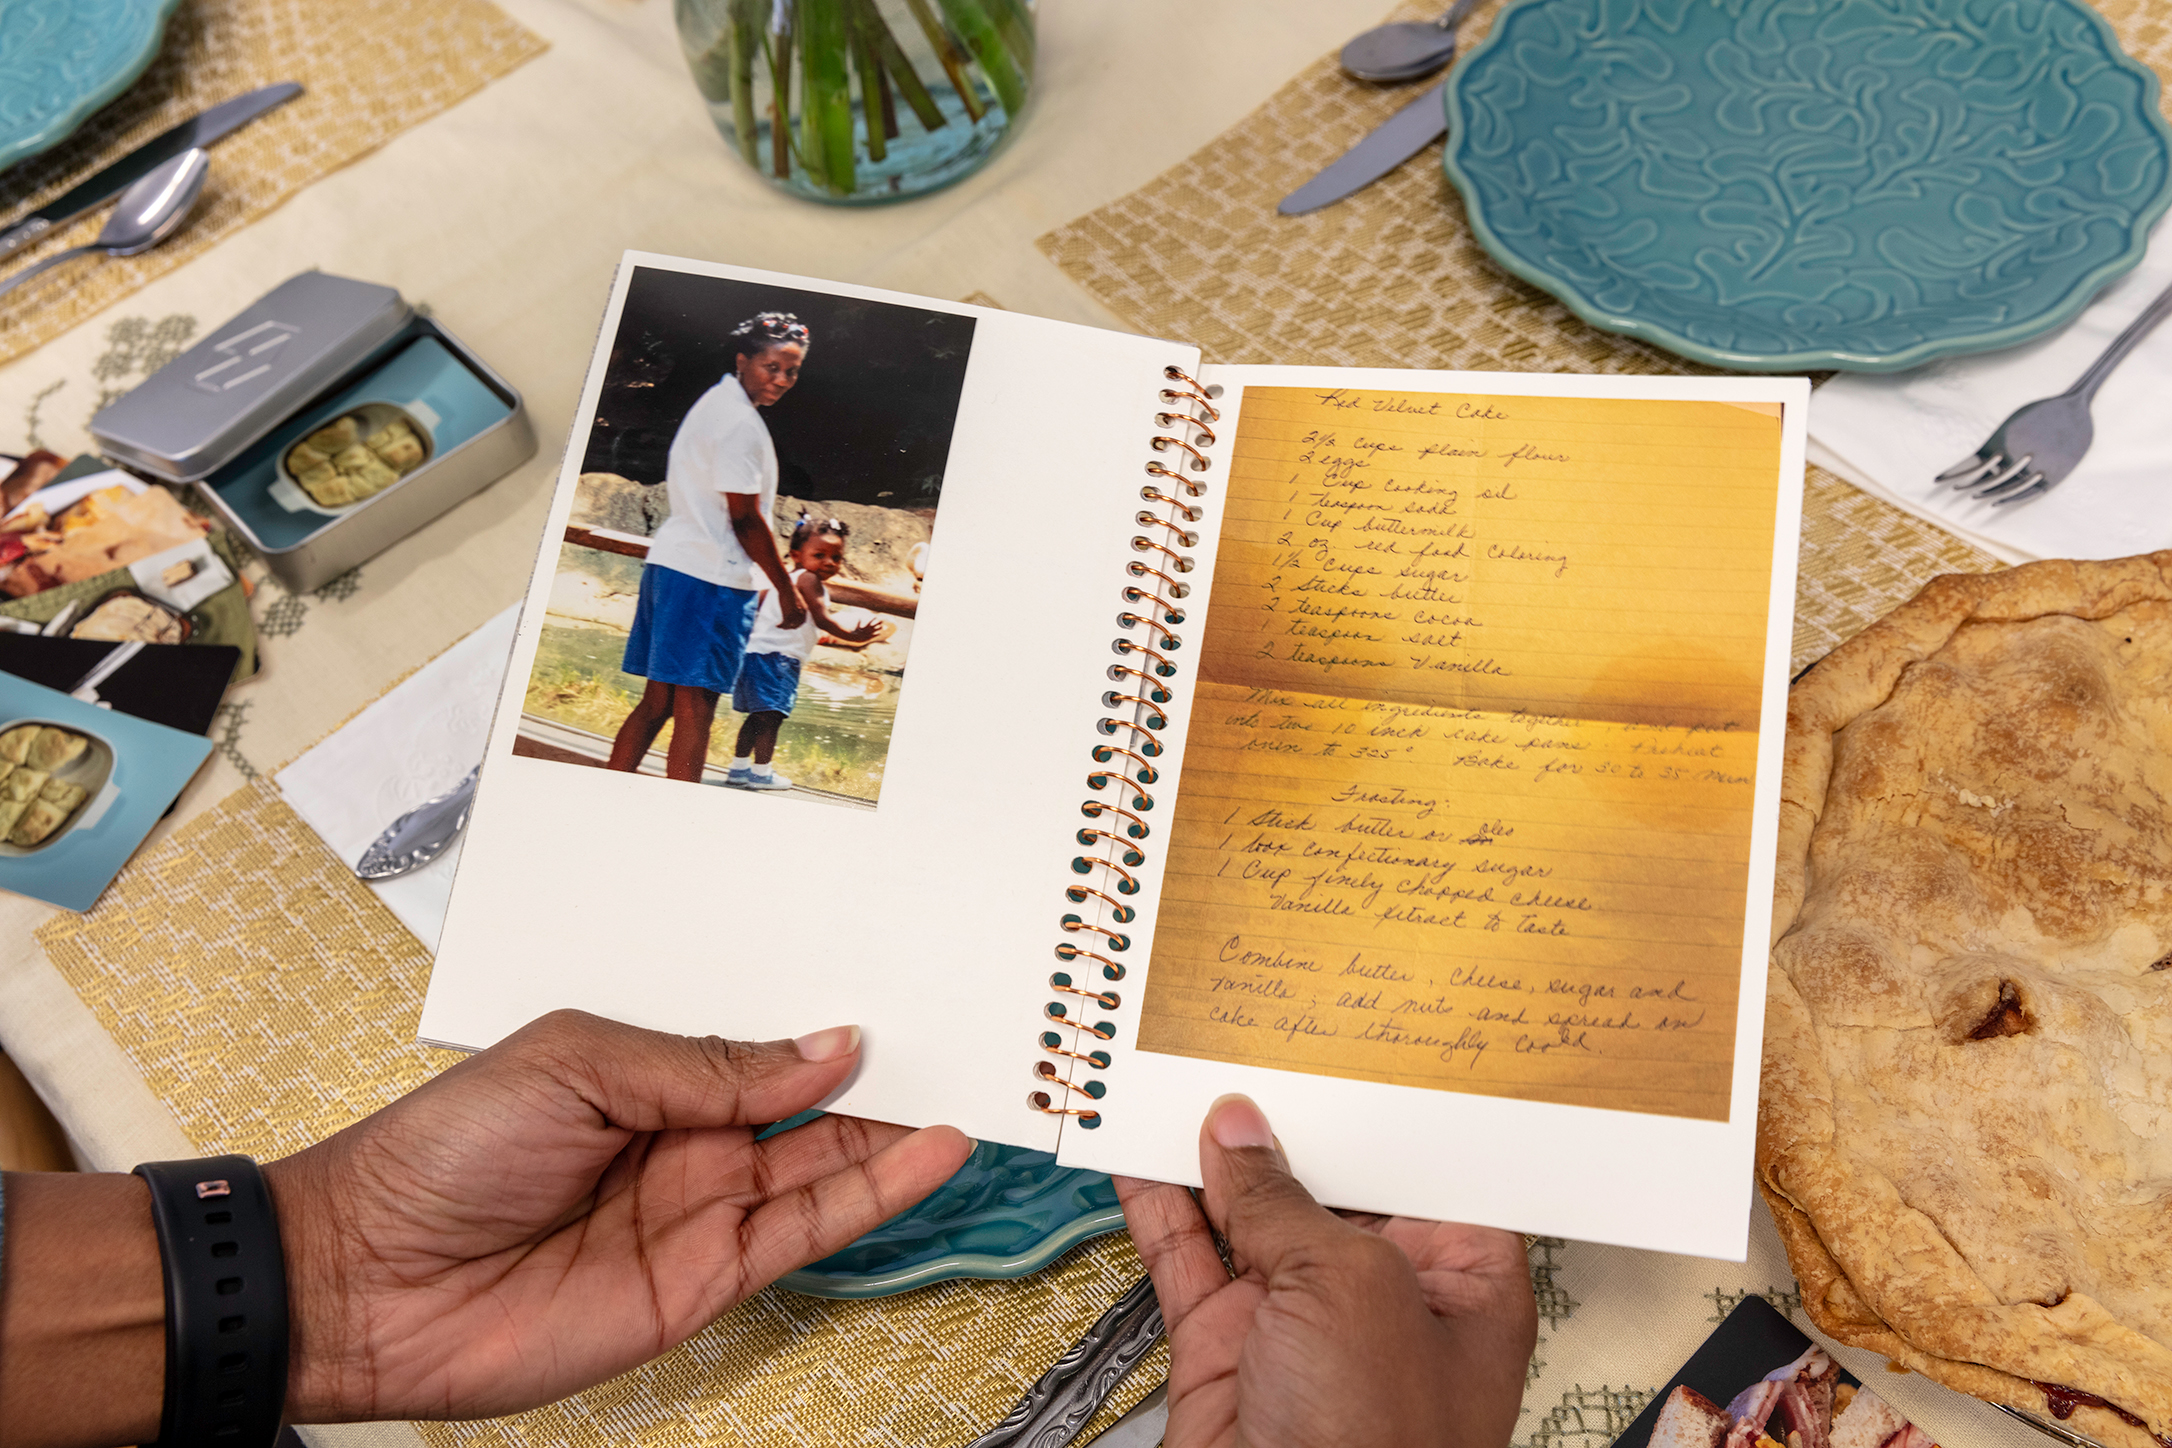 Red Velvet Cake
2½ cups plain flour
2 eggs
1 Cup cooking oil
1 teaspoon soda
1 Cup buttermilk
2 oz. red food coloring
1½ cups sugar
2 sticks butter
2 teaspoons cocoa
1 teaspoon salt
2 teaspoons Vanilla
Mix all ingredients together, and put
into two 10 inch cake pans. Preheat
oven to 325° Bake for 30 to 35 min
Frosting:
1 Stick butter or oleo
1 box confectionary sugar
1 Cup finely chopped cheese
Vanilla extract to taste
Combine butter, cheese, sugar and
vanilla; add nuts and spread on
cake after thoroughly coold.